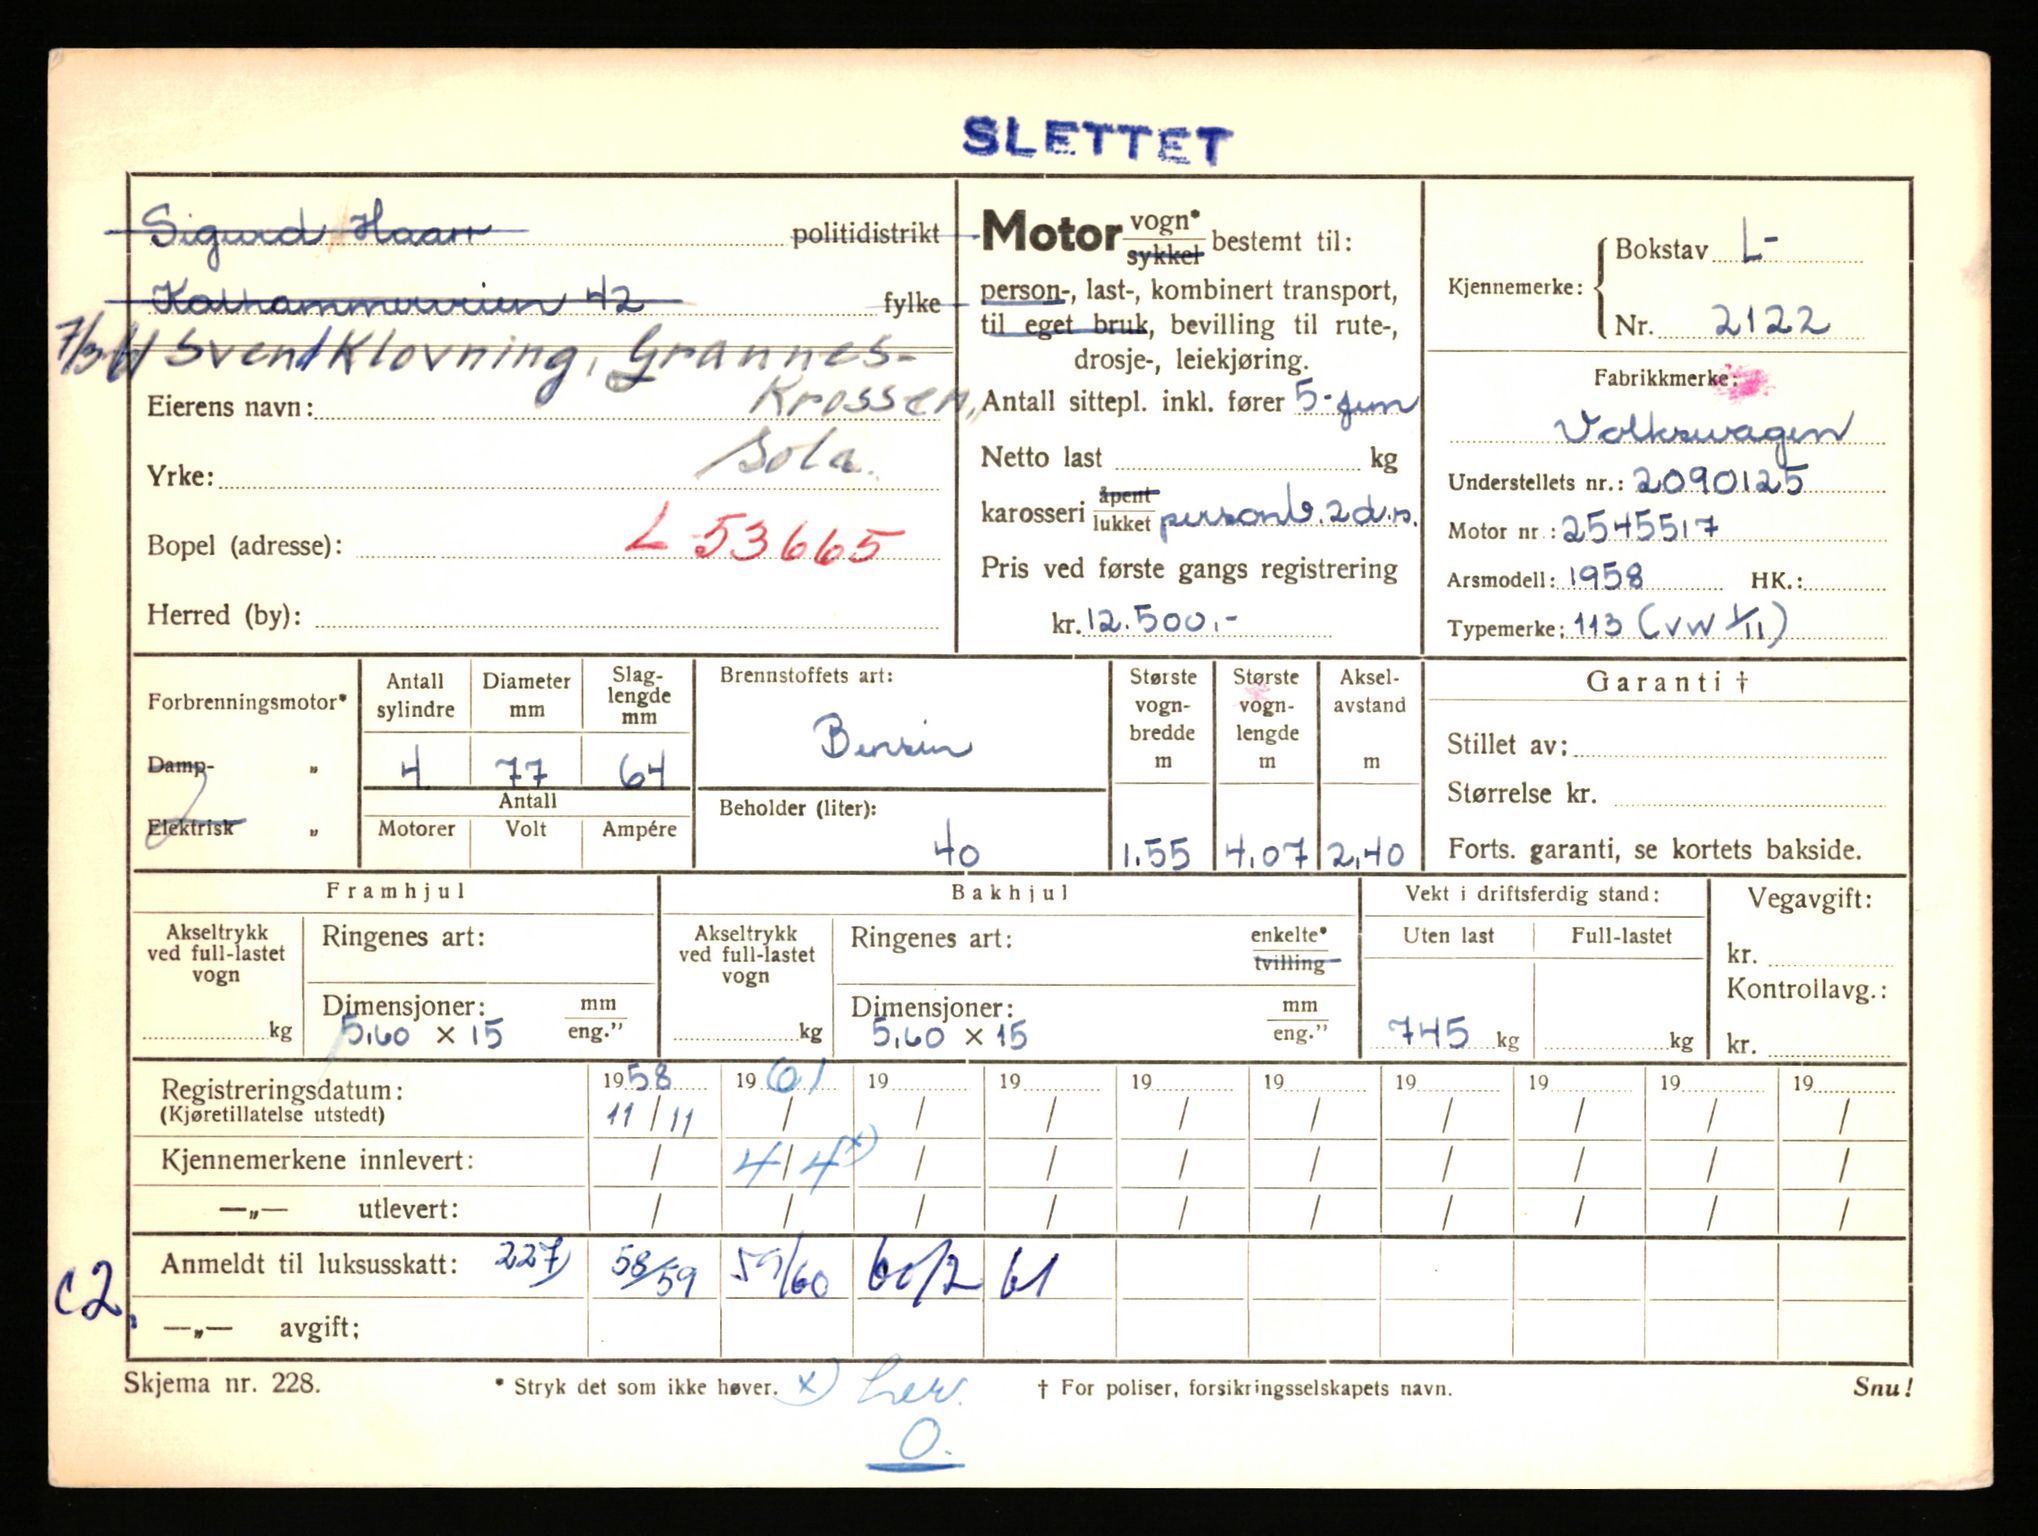 SLETTET
Sigurd Haarr politidistrikt
42 fylke
Svend Klovning, Grannes-
Krossen,
Eierens navn:
Sola.
Yrke:
L-53665
Bopel (adresse):
Herred (by):
Motor vogn* sykkel bestemt til:
person-, last-, kombinert transport,
til eget bruk, bevilling til rute-,
drosje-, leiekjøring.
Antall sittepl. inkl. fører 5-fem
Netto last kg
karosseri åpent lukket personb. 2 d.s.
Pris ved første gangs registrering
kr. 12.500.-
Kjennemerke: Bokstav L-
Nr. 2122
Fabrikkmerke:
Volkswagen
Understellets nr.: 2090125
Motor nr.: 2545517
Arsmodell: 1958 HK.:
Typemerke: 113 (VW 1/11)
Forbrenningsmotor*
Damp- „
Elektrisk „
Antall sylindre Diameter mm Slag-lengde mm
4 77 64
Antall
Motorer Volt Ampére
Brennstoffets art:
Bensin
Beholder (liter):
40
Største vogn-bredde m
1.55
Største vogn-lengde m
4.07
Aksel-avstand m
2.40
Garanti †
Stillet av:
Størrelse kr.
Forts. garanti, se kortets bakside.
Framhjul
Akseltrykk ved full-lastet vogn
kg
Ringenes art:
Dimensjoner: mm eng."
5.60 × 15
Bakhjul
Akseltrykk ved full-lastet vogn
kg
Ringenes art: enkelte* tvilling
Dimensjoner: mm eng."
5.60 × 15
Vekt i driftsferdig stand:
Uten last Full-lastet
745 kg kg
Vegavgift:
kr.
Kontrollavg.:
kr.
Registreringsdatum: 1958 1961 19 19 19 19 19 19 19 19
(Kjøretillatelse utstedt) 11/11 / / / / / / / / /
Kjennemerkene innlevert: / 4/4 x) / / / / / / / /
—„— utlevert: / / / / / / / / / /
Anmeldt til luksusskatt: 227) 58/59 59/60 60/2 61
C2.
—„— avgift:
Skjema nr. 228. * Stryk det som ikke høver. x) † For poliser, forsikringsselskapets navn. Snu!
O.